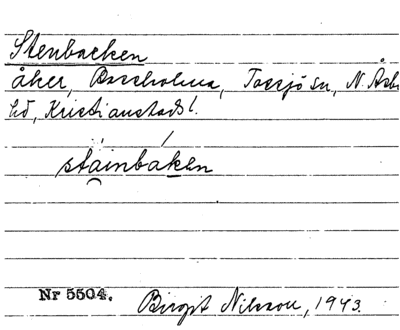 Stenbacken
åker, Boreholma, Tossjö sn, N. Åsbo
hd, Kristianstads l.
stäinbaken
Nr 5504.
Birgit Nilsson, 1943.